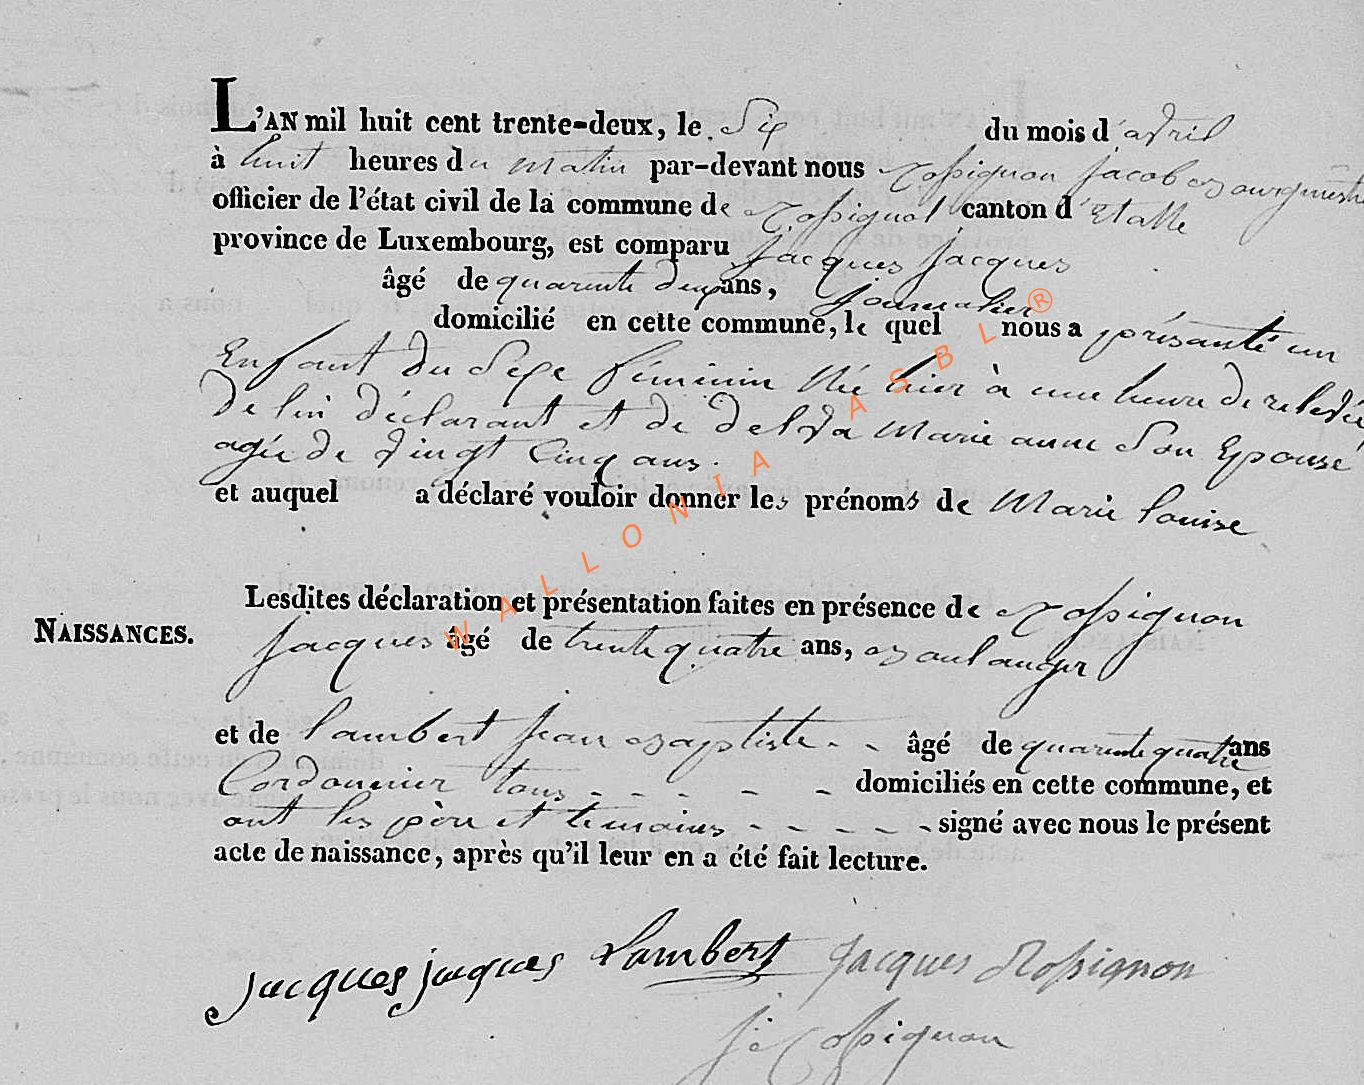 L'AN mil huit cent trente-deux, le Six du mois d'avril
à huit heures du matin par-devant nous Rossignon Jacob Bourgmestre
officier de l'état civil de la commune de Rossignol canton d'Etalle
province de Luxembourg, est comparu Jacques Jacques
âgé de quarente deux ans, journalier
domicilié en cette commune, le quel nous a présanté un
Enfant du Sexe féminin Né hier à une heure de relevée
de lui déclarant et de Delva Marie anne Son Epouse
agée de vingt Cinq ans.
et auquel a déclaré vouloir donner les prénoms de Marie Louise
Lesdites déclaration et présentation faites en présence de Rossignon
NAISSANCES.
Jacques âgé de trente quatre ans, Boulanger
et de Lambert Jean Baptiste - - âgé de quarente quatre ans
Cordonnier tous - - - - - domiciliés en cette commune, et
ont les père et temoins - - - - - signé avec nous le présent
acte de naissance, après qu'il leur en a été fait lecture.
jacques jacques Lambert Jacques Rossignon
J Rossignon
WALLONIA ASBL ®